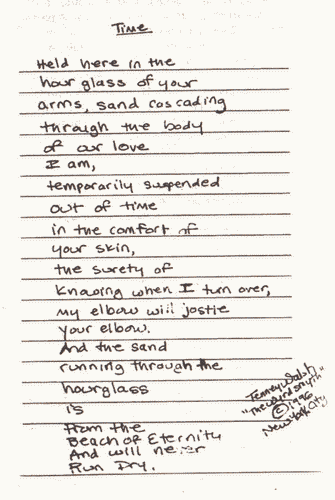 Time
Held here in the
hour glass of your
arms, sand cascading
through the body
of our love
I am,
temporarily suspended
out of time
in the comfort of
your skin,
the surety of
knowing when I turn over,
my elbow will jostle
your elbow.
And the sand
running through the
hourglass
is
from the
Beach of Eternity
And will never
Run Dry.
Tenney Walsh
"The Wordsmyth"
© 1996
New York City